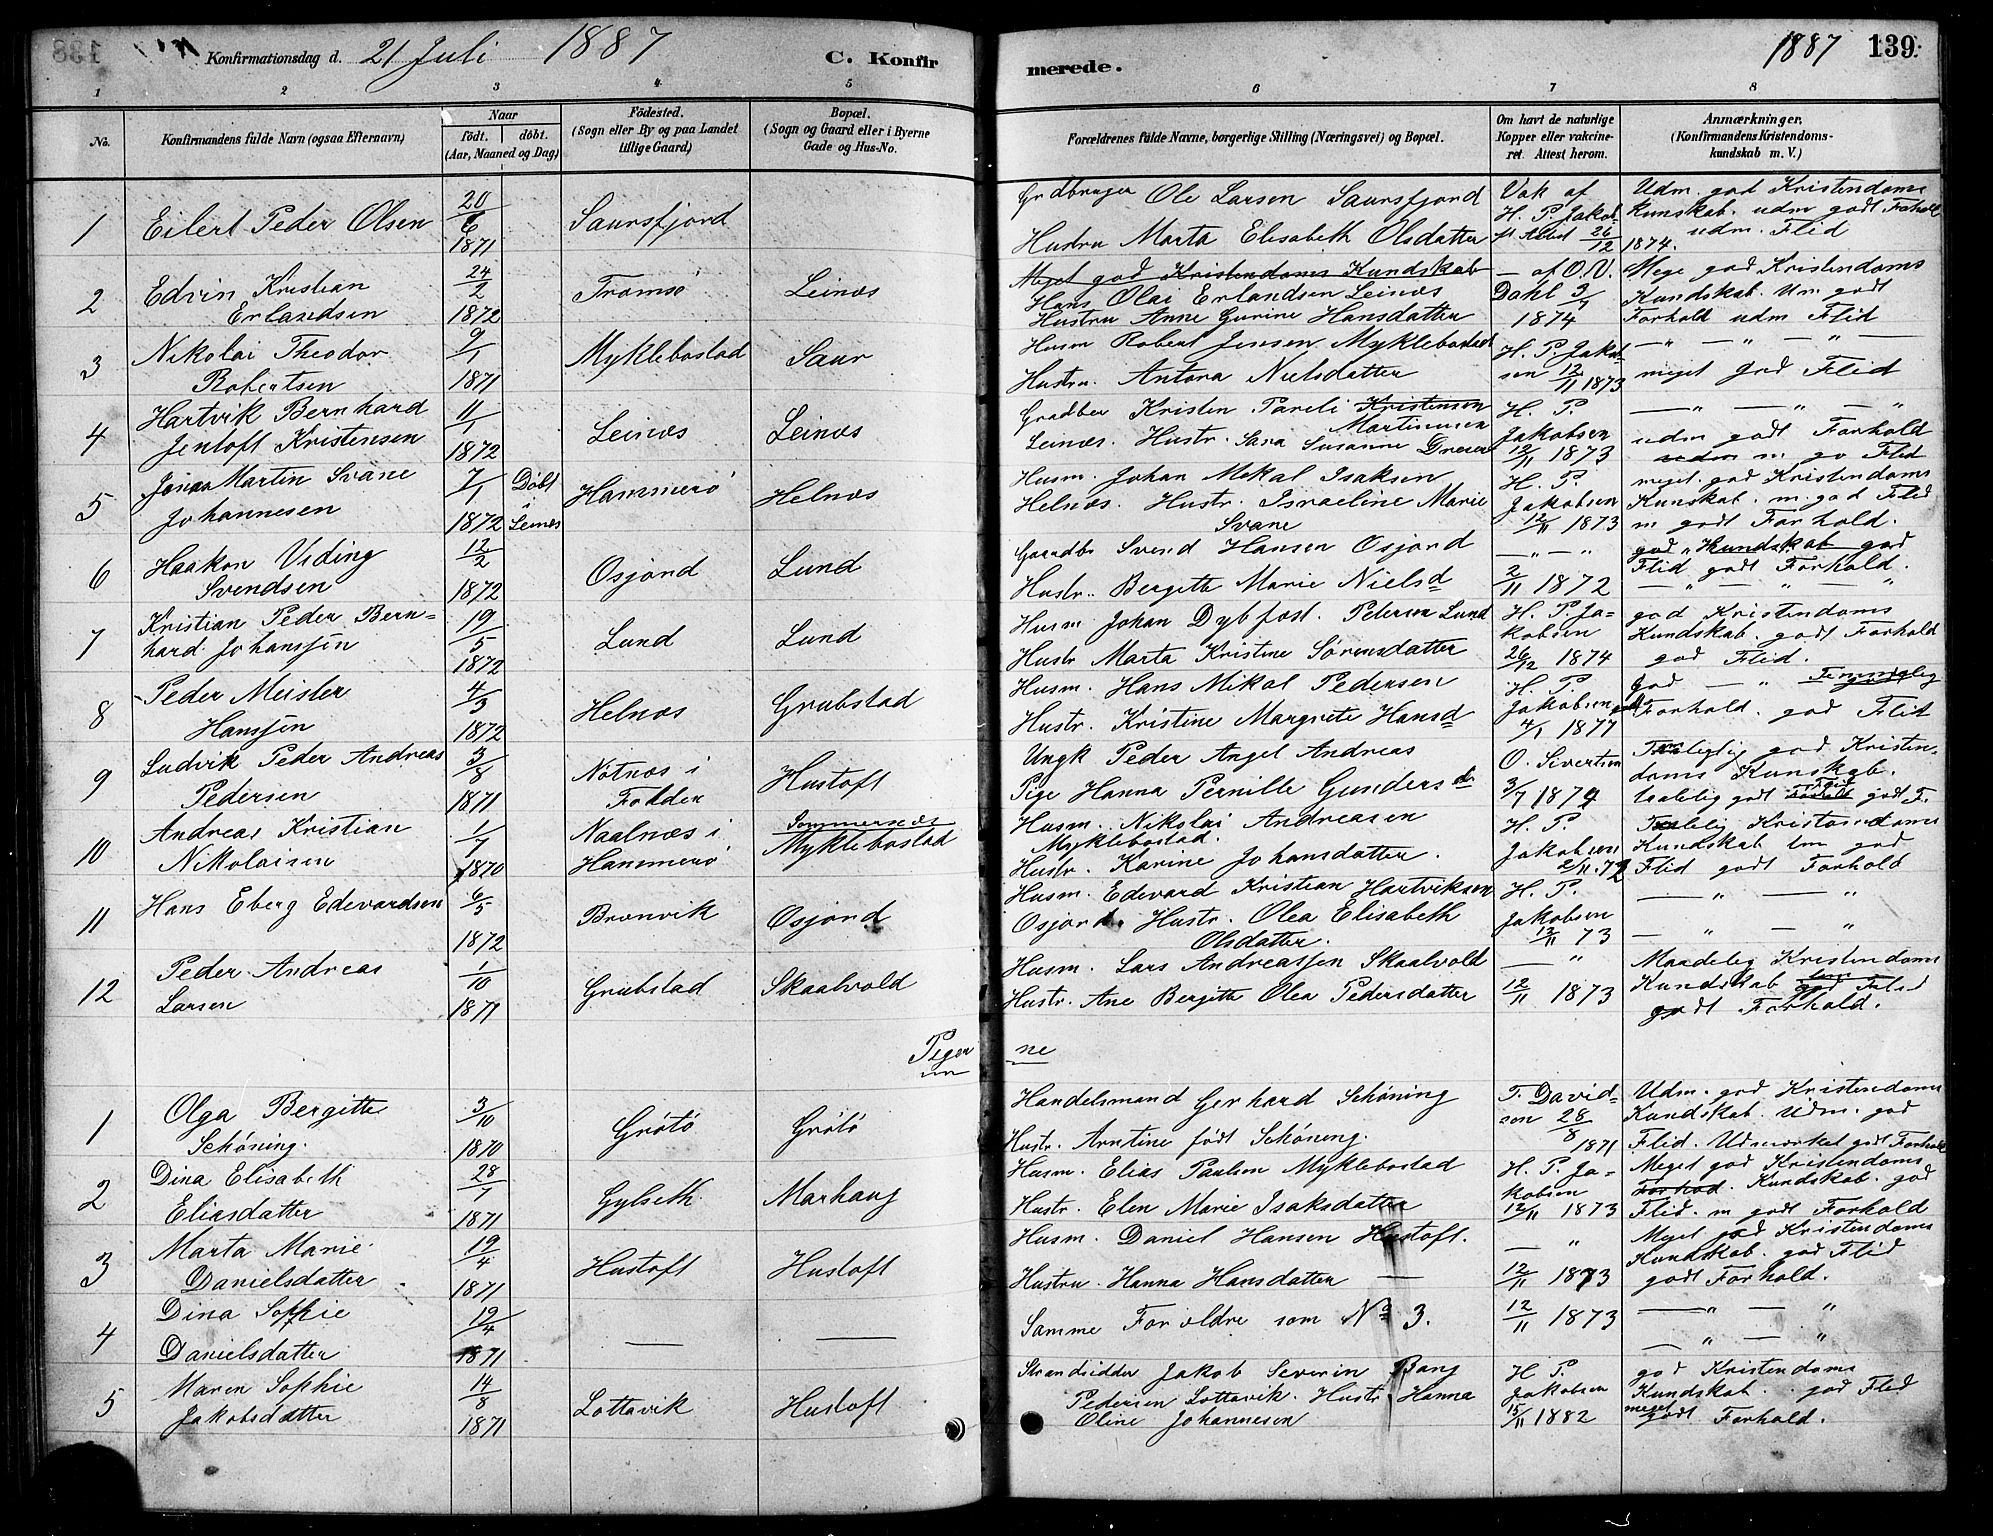 Konfirmationsdag d. 21 Juli 1887 C. Konfir
merede. 1887 139.
1 2 3 4 5 6 7 8
No. Konfirmandens fulde Navn (ogsaa Efternavn)
Naar
født. døbt.
(Aar, Maaned og Dag)
Födested.
(Sogn eller By og paa Landet
tillige Gaard)
Bopæl.
(Sogn og Gaard eller i Byerne
Gade og Hus-No.
Forældrenes fulde Navne, borgerlige Stilling (Næringsvei) og Bopæl.
Om havt de naturlige
Kopper eller vakcine-
ret. Attest herom.
Anmærkninger.
(Konfirmandens Kristendoms-
kundskab m. V.)
1 Eilert Peder Olsen
20/6 1871
Saursfjord
Ole Larsen Saursfjord
Hustru Marta Elisabeth Olsdatter
Vak af
H. P. Jakob
Attest 26/12 1874.
Udm. god Kristendoms
Kunskab. udm godt Forhold
udm. Flid
2 Edvin Kristian
Erlandsen
24/2 1872
Tromsø
Leinæs
Meget god Kristendoms Kundskab
Hans Olai Erlandsen Leinæs
Hustru Anne Gurine Hansdatter
— af O. N.
Dahl 3/7
1874
Mege god Kristendoms
Kundskab. Um godt
Forhold udm Flid
3 Nikolai Theodor
Robertsen
9/1 1871
Myklebostad
Saur
Husm Robert Jensen Myklebostad
Hustru. Antora Nielsdatter
H. P. Jakob-
sen 12/11 1873
— " — " — " —
meget god Flid
4 Hartvik Bernhard
Jentoft Kristensen
11/1 1872
Leinæs
Leinæs
Kristen Pareli Kristensen
Martinussen
Leinæs. Hustr. Sara Susanne
H. P.
Jakobsen
12/11 1873
— " — " — "
udm godt Forhold
m go Flid
5 Jonas Martin Svane
Johannesen
7/1 1872
Døbt
i
Leinæs
Hammerø
Helnæs
Husm. Johan Mekal Isaksen
Helnæs. Hustr. Israeline Marie
Svane
H. P.
Jakobsen
12/11 1873
meget. god Kristendoms
Kunskab. m. god Flid
m godt Forhold.
6 Haakon Viding
Svendsen
12/2 1872
Osjord
Lund
Gaardb. Svend Hansen Osjord
Hustr. Bergitte Marie Nielsd
— " — "
2/11 1872
god Kundskab god
Flid godt Forhold.
7 Kristian Peder Bern-
hard Johanssen
19/5 1872
Lund
Lund
Husm Johan Dybfest. Petersen Lund
Hustr Marta Kristine Sørensdatter
H. P. Ja-
kobsen
26/12 1874
— " — " — "
god Kristendoms
Kundskab. godt Forhold
god Flid.
8 Peder Meisler
Hanssen
4/3 1872
Helnæs
Grubstad
Husm. Hans Mikal Pedersen
Hustr. Kristine Margrete Hansd
H. P.
Jakobsen
4/1 1877
god — "
Forhold. god Flid
9 Ludvik Peder Andreas
Pedersen
3/8 1871
Nötnæs i
Folden
Hustoft
Ungk Peder Angel Andreas
Pige Hanna Pernille Gundersd
O. Sivertsen
3/7 1874
god Kristen-
doms Kunskab.
taalelig godt Forhold godt F.
10 Andreas Kristian
Nikolaisen
1/7 1870
Naalnæs i
Hammerø
Sommerset
Myklebostad
Husm. Nikolai Andreasen
Myklebostad.
Hustr. Karine Johansdatter.
H. P.
Jakobsen
2/11. 72
Kristendoms
Kundskab god
Flid godt Forhold
11 Hans Eberg Edevardsen
6/5 1872
Brænvik
Osjord
Husm. Edevard Kristian Hartviksen
Osjord. Hustr. Olea Elisabeth
Olsdatter.
H. P.
Jakobsen
12/11 73
— " — "
— " — "
12 Peder Andreas
Larsen
1/10 1871
Grubstad
Skaalvold
Husm. Lars Andreassen Skaalvold
Hustr. Ane Bergitte Olea Pedersdatter
— "
12/11 1873
Maadelig Kristendoms
Kundskab god Flid
godt Forhold.
Piger
ne
1 Olga Bergitte
Schöning.
3/10 1870
Grötö
Grötö
Handelsmand Gerhard Schöning
Hustr. Arntine født Schöning.
T. David-
sen 28/8
1871
Udm. god Kristendoms
Kundskab. Udm. god
Flid. Udmærket godt Forhold
2 Dina Elisabeth
Eliasdatter
28/7 1871
Gylseth
Marhaug
Husm. Elias Paulsen Myklebostad
Hustr. Elen Marie Isaksdatter
H. P. Ja-
kobsen
12/11 1873
Meget god Kristendoms
Forhod. Kundskab. god
Flid. m godt Forhold
3 Marta Marie
Danielsdatter
19/4 1871
Hustoft
Hustoft
Husm. Daniel Hansen Hustoft.
Hustru. Hanna Hansdatter —
— "
12/11 1873
Meget god Kristendoms
Kundskab. god Flid
godt Forhold.
4 Dina Sophie
Danielsdatter
19/4 1871
—
—
Samme Forældre som No 3.
12/11 1873
— " — "
— " — "
5 Maren Sophie
Jakobsdatter
14/8 1871
Lottavik
Hustoft
Strandsidder Jakob Severin Bang
Pedersen Lottavik. Hustr Hanna
Oline Johannesen
H P.
Jakobsen
15/11 1882
god Kristendoms
Kundskab. god Flid
meget
godt Forhold.